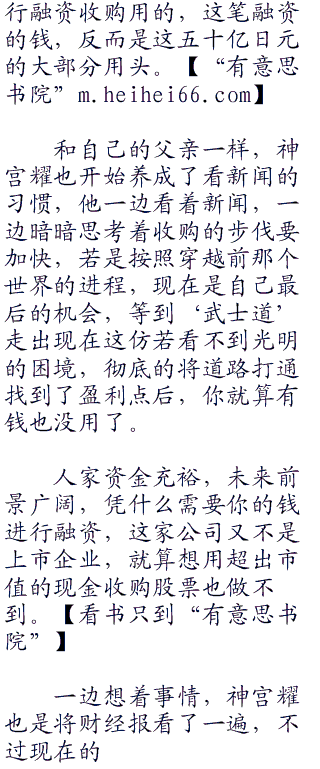 行融资收购用的，这笔融资
的钱，反而是这五十亿日元
的大部分用头。【“有意思
书院”m.heihei66.com】
和自己的父亲一样，神
宫耀也开始养成了看新闻的
习惯，他一边看着新闻，一
边暗暗思考着收购的步伐要
加快，若是按照穿越前那个
世界的进程，现在是自己最
后的机会，等到‘武士道’
走出现在这仿若看不到光明
的困境，彻底的将道路打通
找到了盈利点后，你就算有
钱也没用了。
人家资金充裕，未来前
景广阔，凭什么需要你的钱
进行融资，这家公司又不是
上市企业，就算想用超出市
值的现金收购股票也做不
到。【看书只到“有意思书
院”】
一边想着事情，神宫耀
也是将财经报看了一遍，不
过现在的